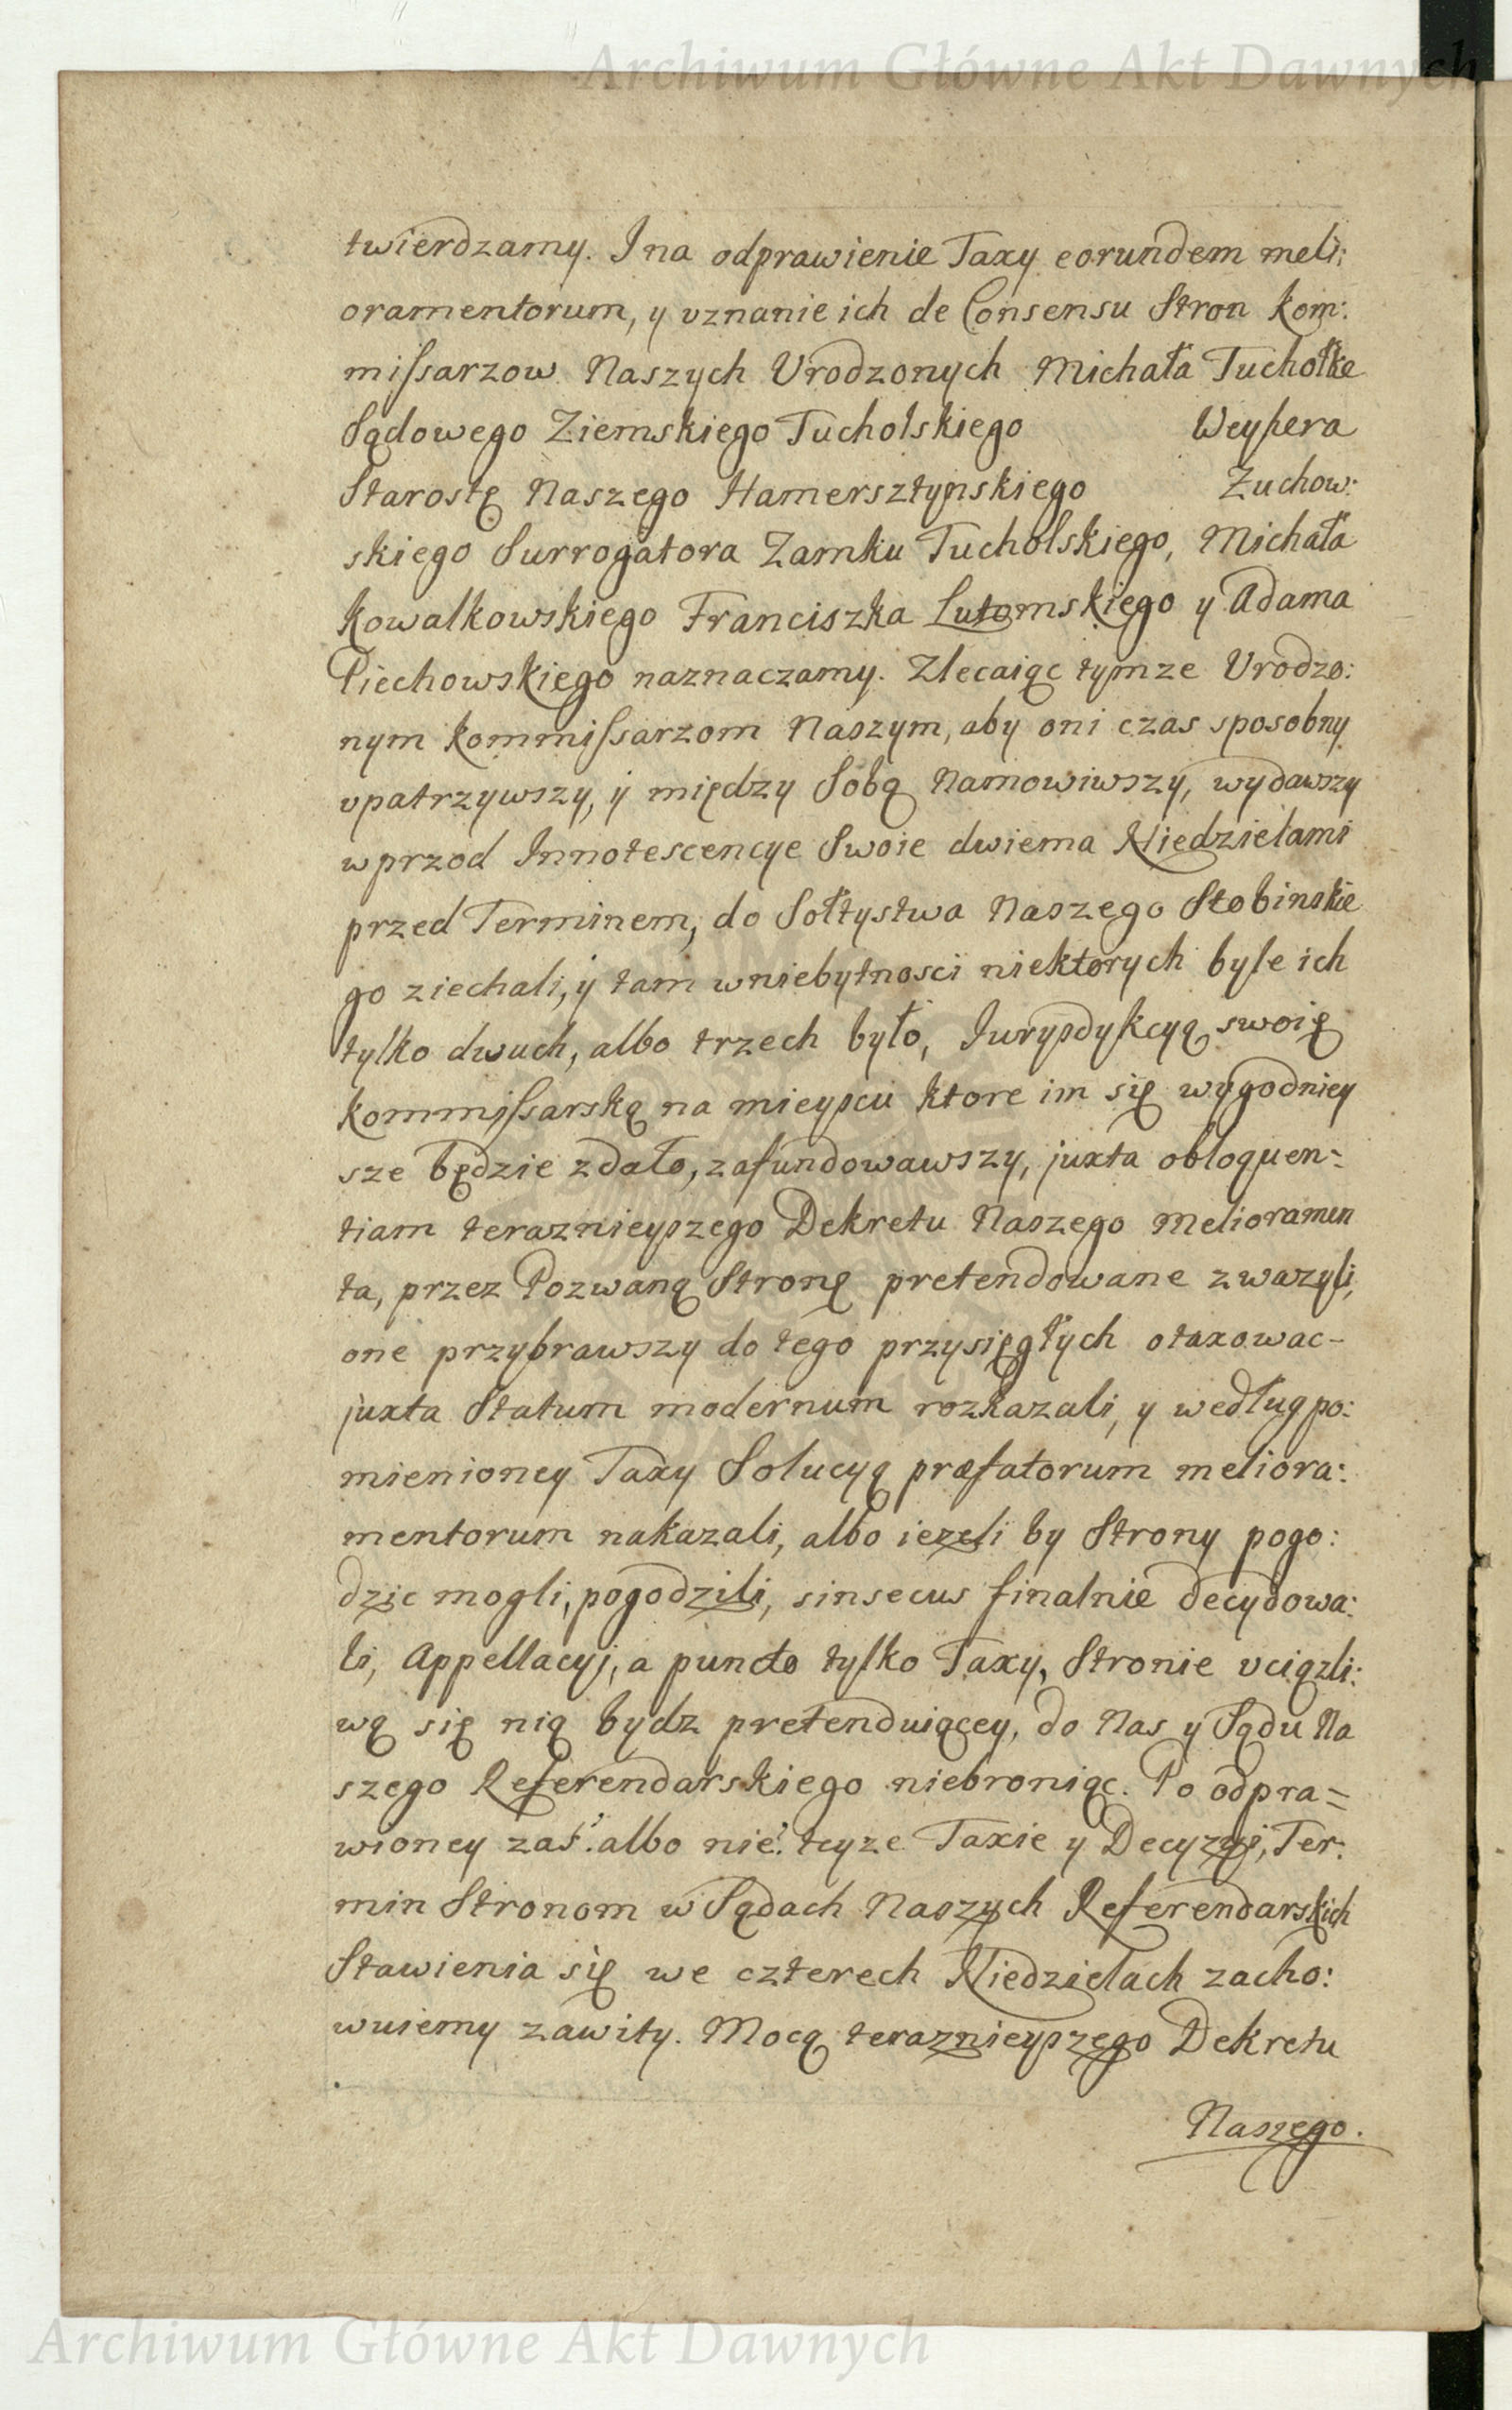 Archiwum Główne Akt Dawnych
twierdzamy. I na odprawienie Taxy eorundem meli:
oramentorum, y uznanie ich de Consensu Stron Kom:
missarzow Naszych Urodzonych Michała Tuchołke
Sądowego Ziemskiego Tucholskiego Weyhera
Starostę Naszego Hamersztynskiego Zuchow:
skiego Surrogatora Zamku Tucholskiego, Michała
Kowalkowskiego Franciszka Lutomskiego y Adama
Piechowskiego naznaczamy. Zlecaiąc tymze Urodzo:
nym Kommissarzom Naszym, aby oni czas sposobny
upatrzywszy, y między Sobą Namowiwszy, wydawszy
wprzod Innotescencye Swoie dwiema Niedzielami
przed Terminem, do Sołtystwa Naszego Stobinskie
go ziechali, y tam w niebytnosci niektorych byle ich
tylko dwuch, albo trzech było, Iurysdykcyą swoię
Kommissarską na mieyscu ktore im się wygodniey
sze będzie zdało, zafundowawszy, juxta obloquen=
tiam teraznieyszego Dekretu Naszego Melioramen
ta, przez Pozwaną Stronę pretendowane zwazyli,
one przybrawszy do tego przysięgłych otaxowac-
juxta Statum modernum rozkazali, y według po:
mienioney Taxy Solucyą præfatorum meliora:
mentorum nakazali, albo iezeli by Strony pogo:
dzic mogli, pogodzili, sinsecus finalnie decydowa:
li, Appellacyi, a puncto tylko Taxy, Stronie uciązli:
wą się nią bydz pretenduiącey, do Nas y Sądu Na
szego Referendarskiego niebroniąc. Po odpra=
wioney zaś. albo nie. teyze Taxie y Decyzyi, Ter:
min Stronom w Sądach Naszych Referendarskich
Stawienia się we czterech Niedzielach zacho:
wuiemy zawity. Mocą teraznieyszego Dekretu
Naszego.
Archiwum Główne Akt Dawnych